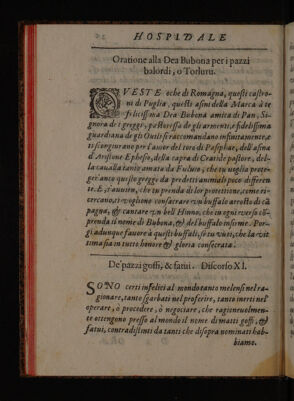 HOSPIDALE
Oratione alla Dea Bubona per i pazzi
balordi, o Torluru.
QVESTE oche di Romagna, questi castro-
ni di Puglia, questo asini della Marca à te
felicissima Dea Bubona amica di Pan, Si-
gnora de i greggi, pastoressa de gli armenti, e fidelissima
guardiana de gli Outli si raccomandano infinitamente, e
ti scongiurano per l'amor del toro di Pasiphae, dell'asina
d'Aristone Ephesio, della capra di Cratide pastore, del-
la caualla tanto amata da Fuluio, che tu voglia prote-
ger'anco questo gregge da predetti animali poco differen
te. E, s'auuien, che tu prenda di lor protettione, come ri-
cercano, ti vogliono consacrare vn buffalo arosto di cā
pagna, & cantare vn bell'Hinno, che in ogni verso cō-
prenda il nome di Bubona, & del buffalo insieme. Por-
gi adunque fauore à questi buffali, se tu vuoi, che la vit
tima sia in tutto honore & gloria consecrata.
De' pazzi goffi, & fatui. Discorso XI.
SONO certi infelici al mondo tanto melensi nel ra-
gionare, tanto sgarbati nel proferire, tanto inetti nell'
operare, ò procedere, ò negotiare, che ragioneuolmen-
te ottengono presso al mondo il nome di matti goffi, &
fatui, contradistinti da tanti che disopra nominati hab-
biamo.